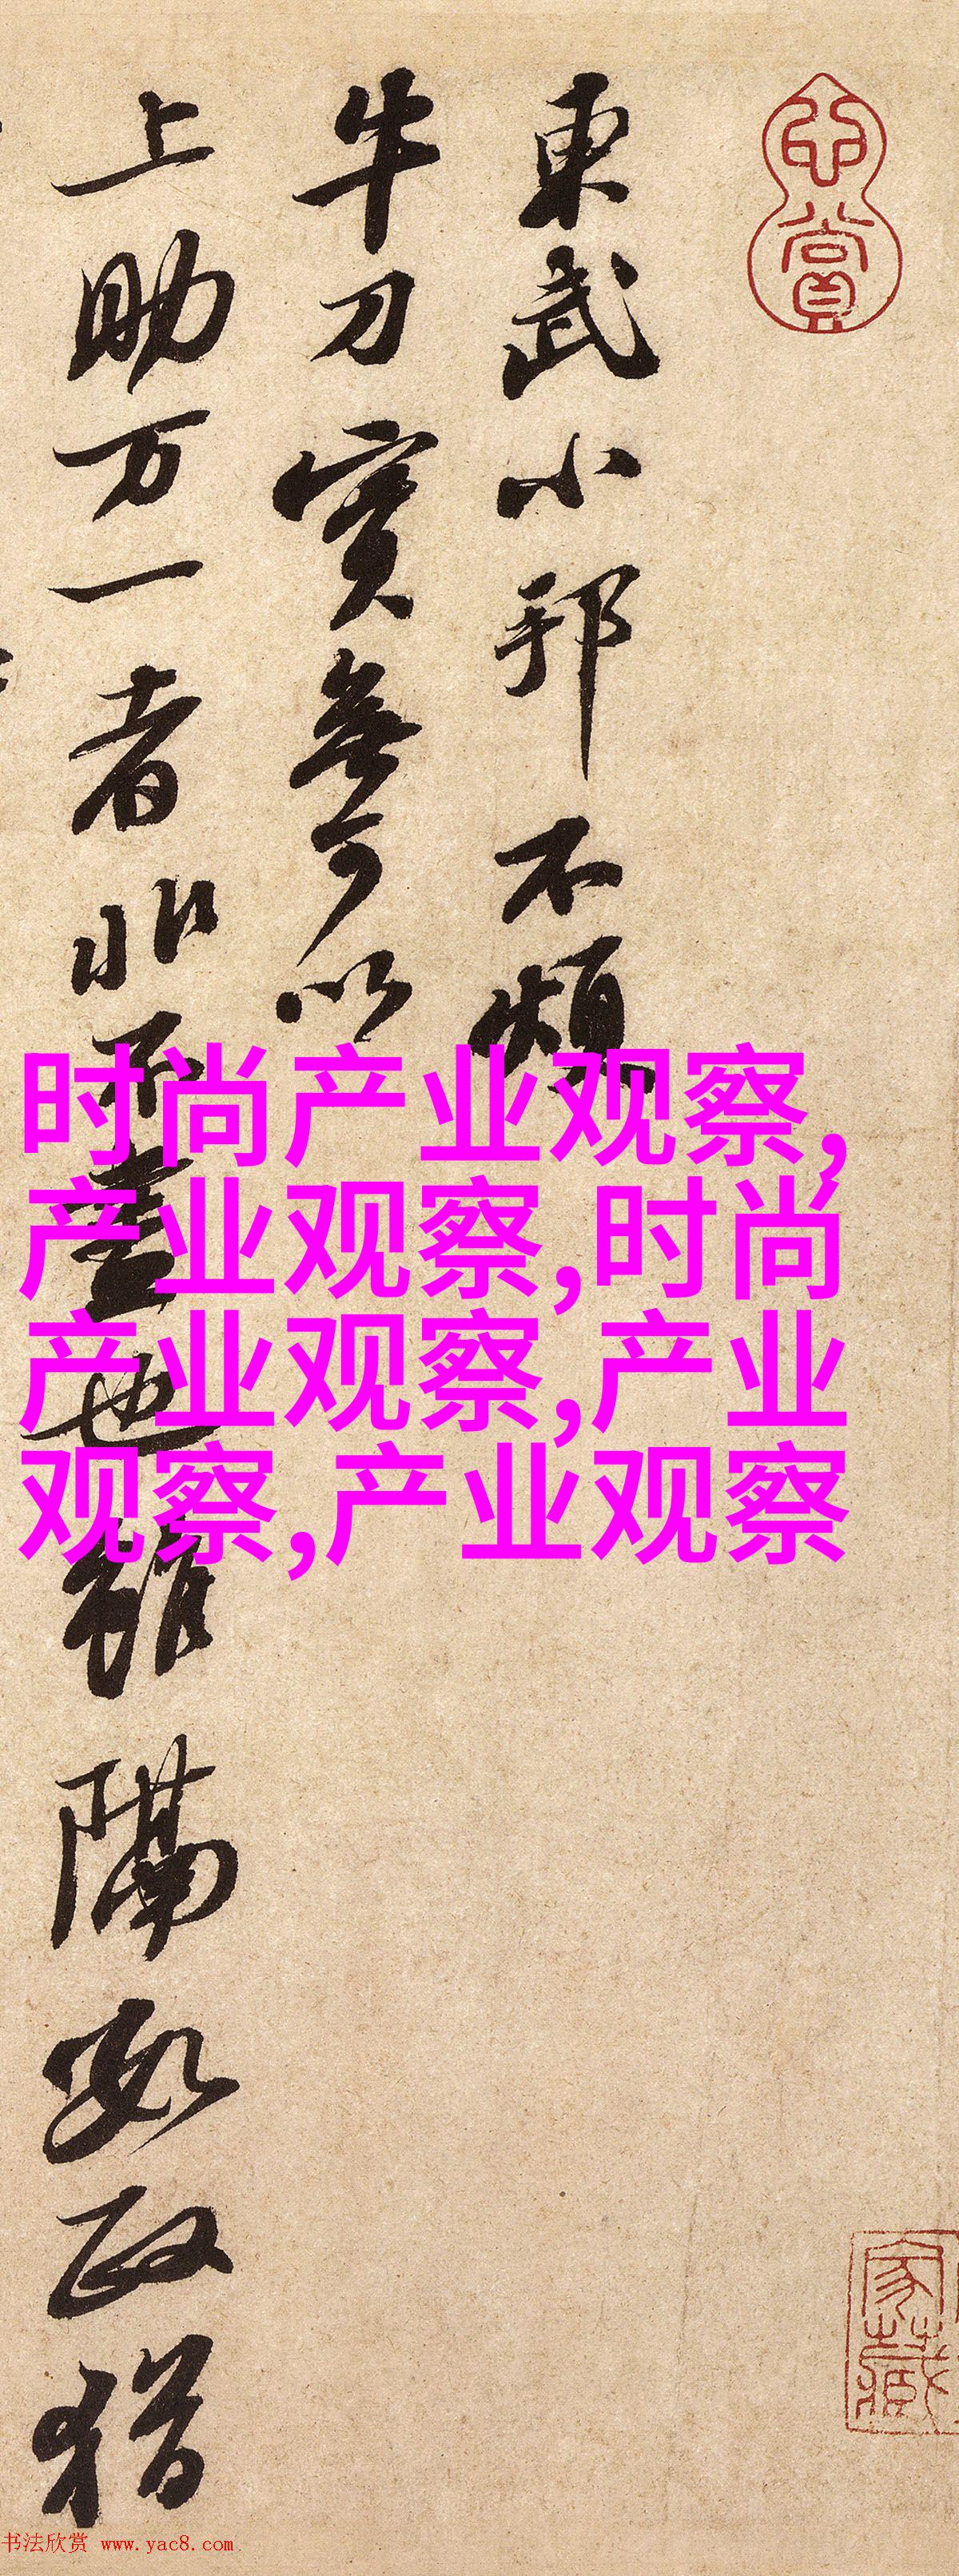 東武小邦不煩
牛刀實無可以
上助万一者非不盡也雖隔數政猶
时尚产业观察,
产业观察,时尚
产业观察,产业
观察,产业观察
家藏
书法欣赏 www.yac8.com